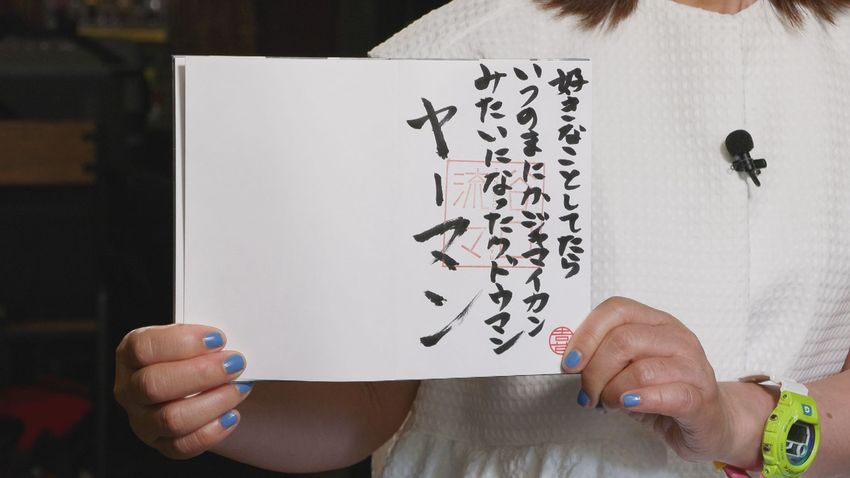 好きなことしてたら
いつのまにかジャマイカン
みたいになったグドウマン
ヤーマン